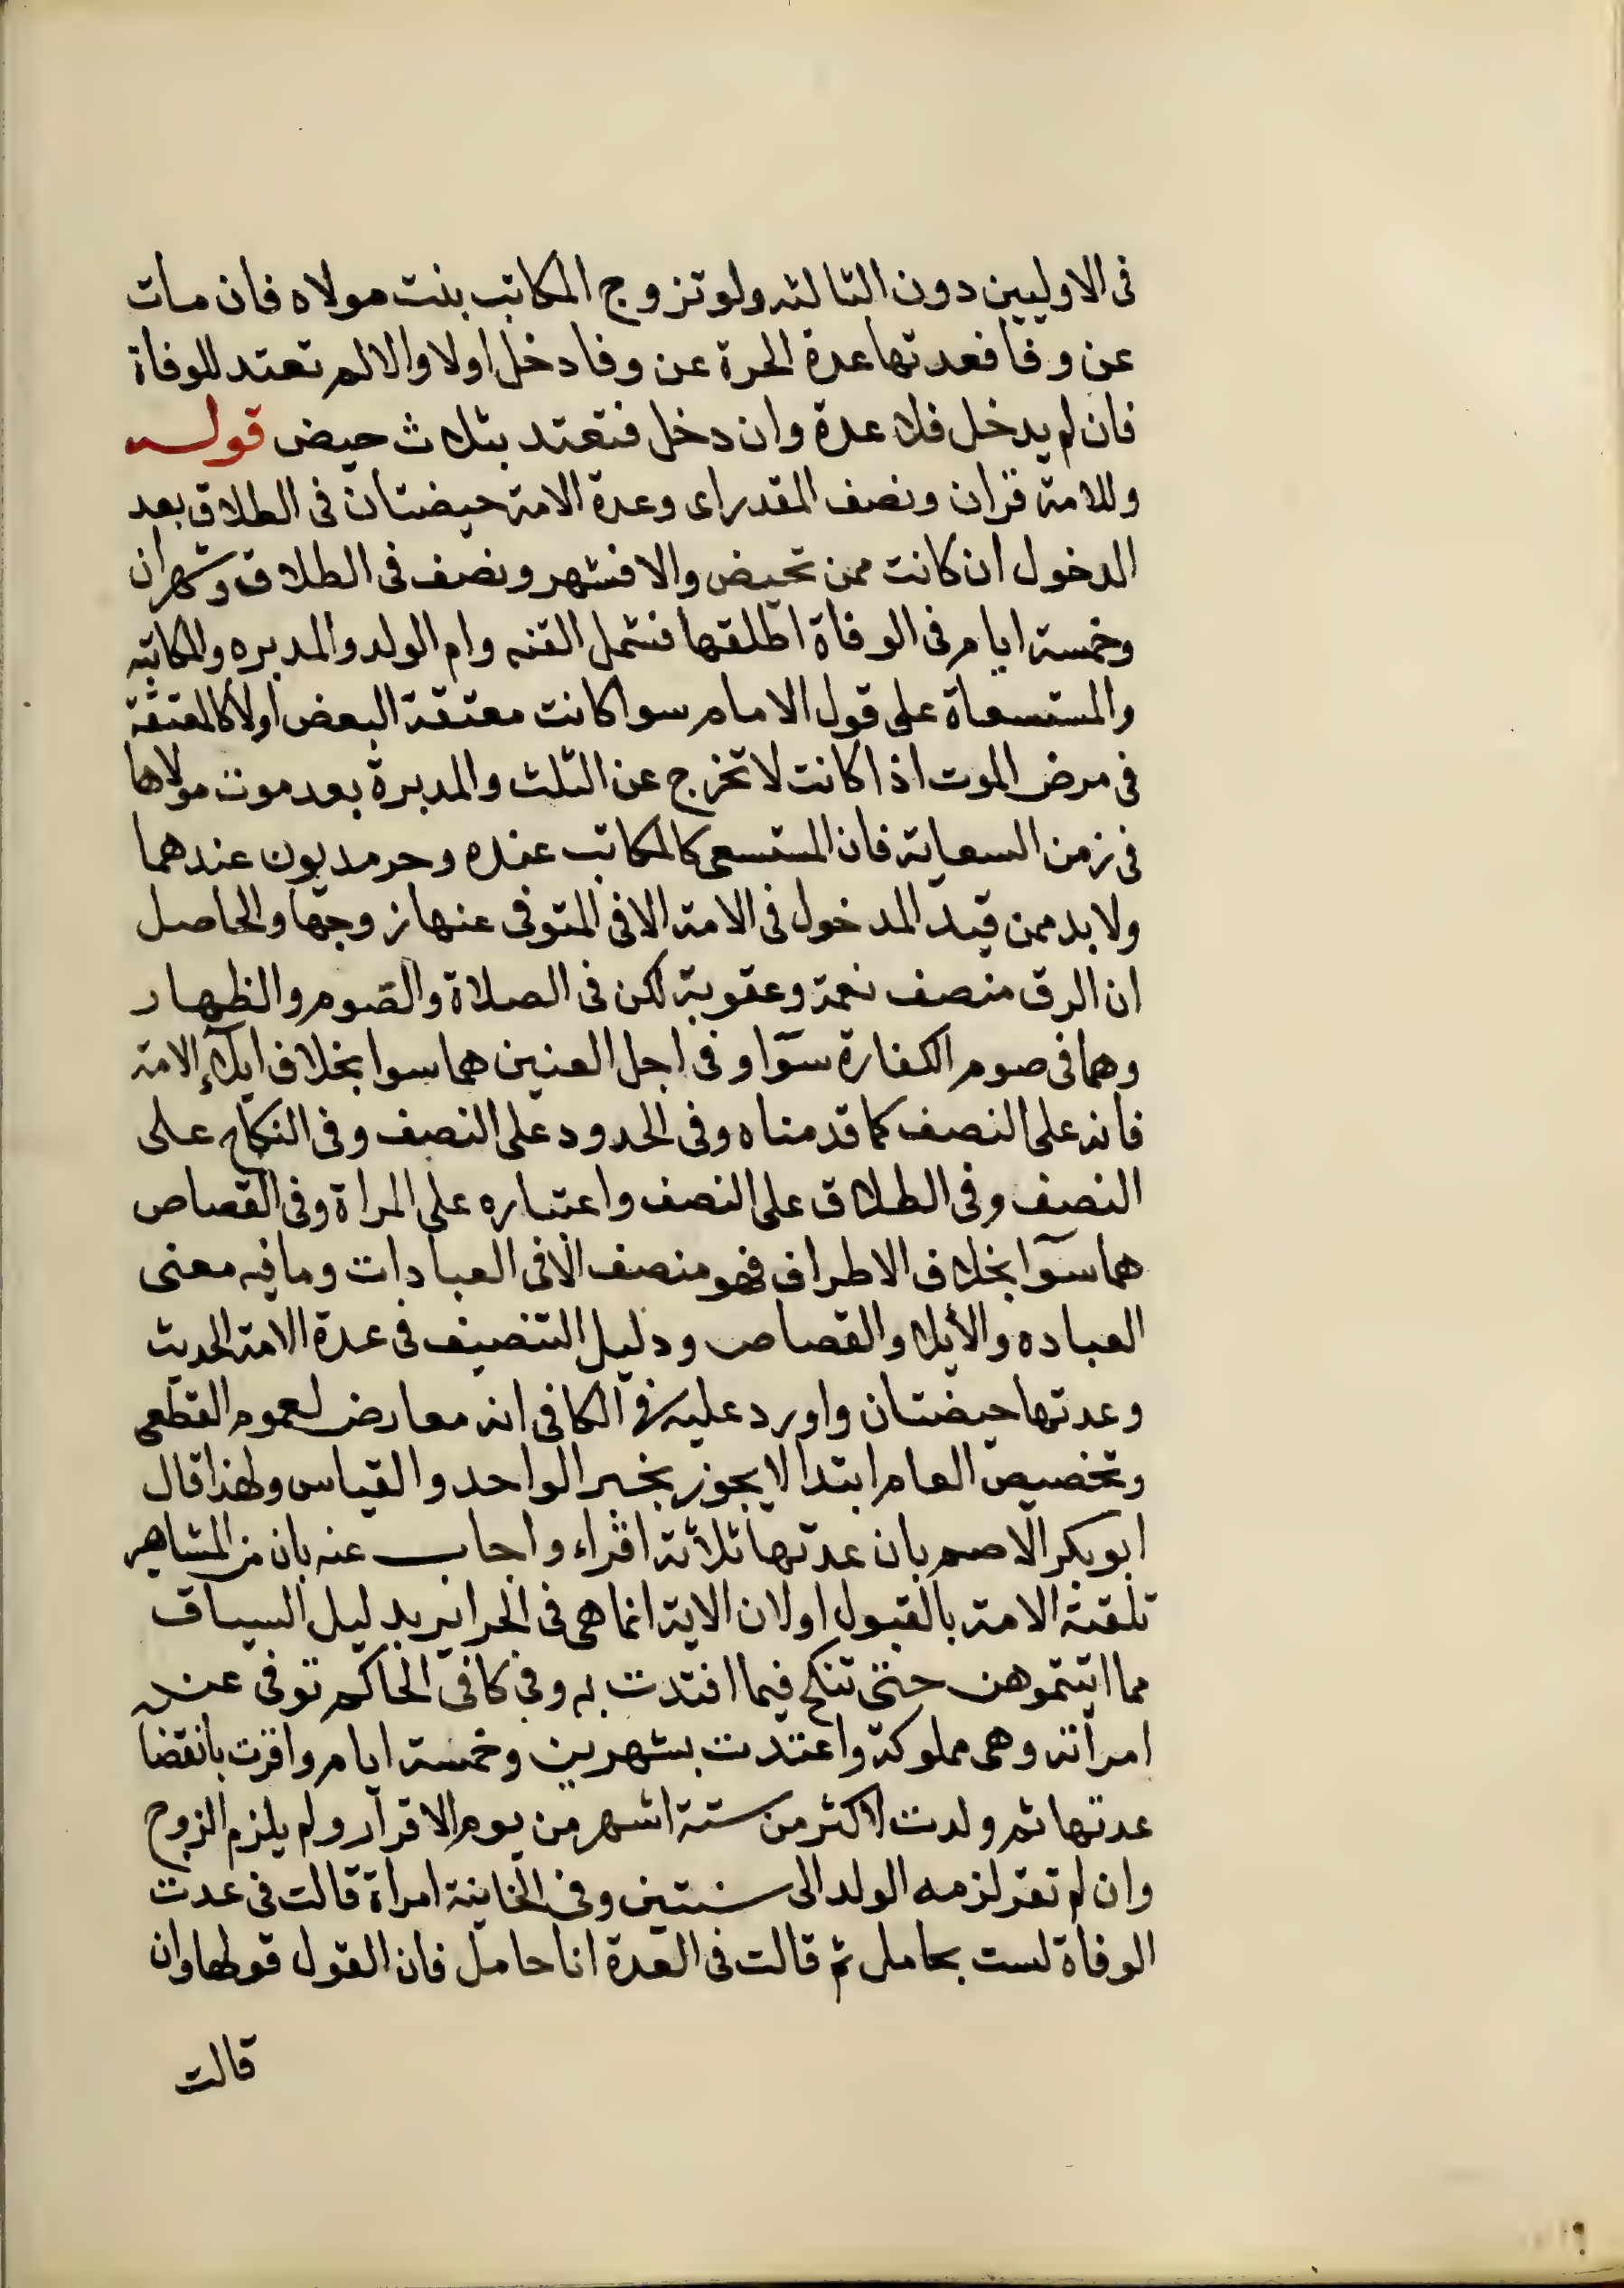 فى الاوليين دون الثالثه ولو تزوج المكاتب بنت مولاه فان مات
عن وفا فعدتها عدة الحرة عن وفا دخل اولا والا لم تعتد للوفاة
فان لم يدخل فلا عدة وان دخل فتعتد بثلاث حيض قوله
وللامة قران ونصف المقدر اى وعدة الامة حيضتان فى الطلاق بعد
الدخول ان كانت ممن تحيض والا فشهر ونصف فى الطلاق وشهران
وخمسة ايام فى الوفاة اطلقها فشمل القنه وام الولد والمدبره والمكاتبه
والمستسعاة على قول الامام سوا كانت معتقة البعض اولا كالمعتقة
فى مرض الموت اذا كانت لا تخرج عن الثلث والمدبرة بعد موت مولاها
فى زمن السعاية فان المستسعى كالمكاتب عنده وحر مديون عندهما
ولا بد ممن قيد المدخول فى الامة الا فى المتوفى عنها زوجها والحاصل
ان الرق منصف نعمة وعقوبة لكن فى الصلاة والصوم والظهار
وهما فى صوم الكفارة سوآ و فى اجل العنين هما سوا بخلاف ايلاء الامة
فانه على النصف كما قدمناه وفى الحدود على النصف وفى النكاح على
النصف وفى الطلاق على النصف واعتباره على المراة وفى القصاص
هما سوآ بخلاف الاطراف فهو منصف الا فى العبادات وما فيه معنى
العباده والأيلا والقصاص ودليل التنصيف فى عدة الامة الحديث
وعدتها حيضتان واورد عليه فى الكافى انه معارض لعموم القطعى
وتخصيص العام ابتدا لا يجوز بخبر الواحد والقياس ولهذا قال
ابو بكر الاصم بان عدتها ثلاثة اقراء واجاب عنه بان من المشاهير
تلقته الامة بالقبول اولان الاية انما هى فى الحراير بدليل السياق
مما اتيتموهن حتى تنكح فيما افتدت به وفى كافى الحاكم توفى عن
امرأته وهى مملوكة واعتدت بشهرين وخمسة ايام واقرت بانقضا
عدتها ثم ولدت لاكثر من ستة اشهر من يوم الاقرار ولم يلزم الزوج
وان لم تقر لزمه الولد الى سنتين وفى الخانية امراة قالت فى عدت
الوفاة لست بحامل ثم قالت فى العدة انا حامل فان القول قولها وان
قالت